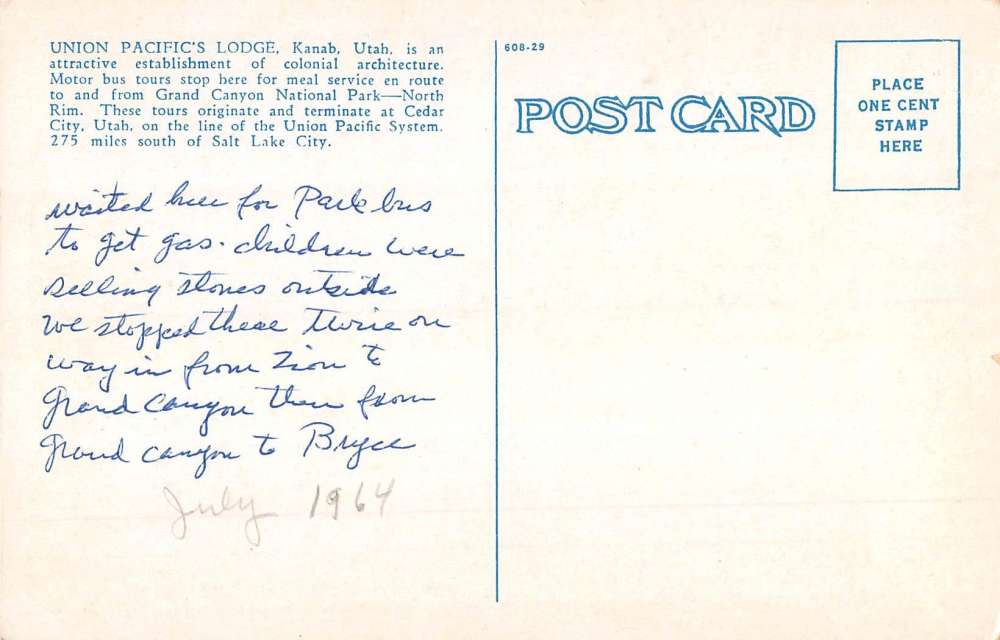 UNION PACIFIC'S LODGE, Kanab, Utah, is an
attractive establishment of colonial architecture.
Motor bus tours stop here for meal service en route
to and from Grand Canyon National Park—North
Rim. These tours originate and terminate at Cedar
City, Utah, on the line of the Union Pacific System.
275 miles south of Salt Lake City.
waited here for Park bus
to get gas. children were
selling stones outside
We stopped there twice on
way in from Zion to
Grand Canyon then from
Grand canyon to Bryce
July 1964
608-29
POST CARD
PLACE
ONE CENT
STAMP
HERE